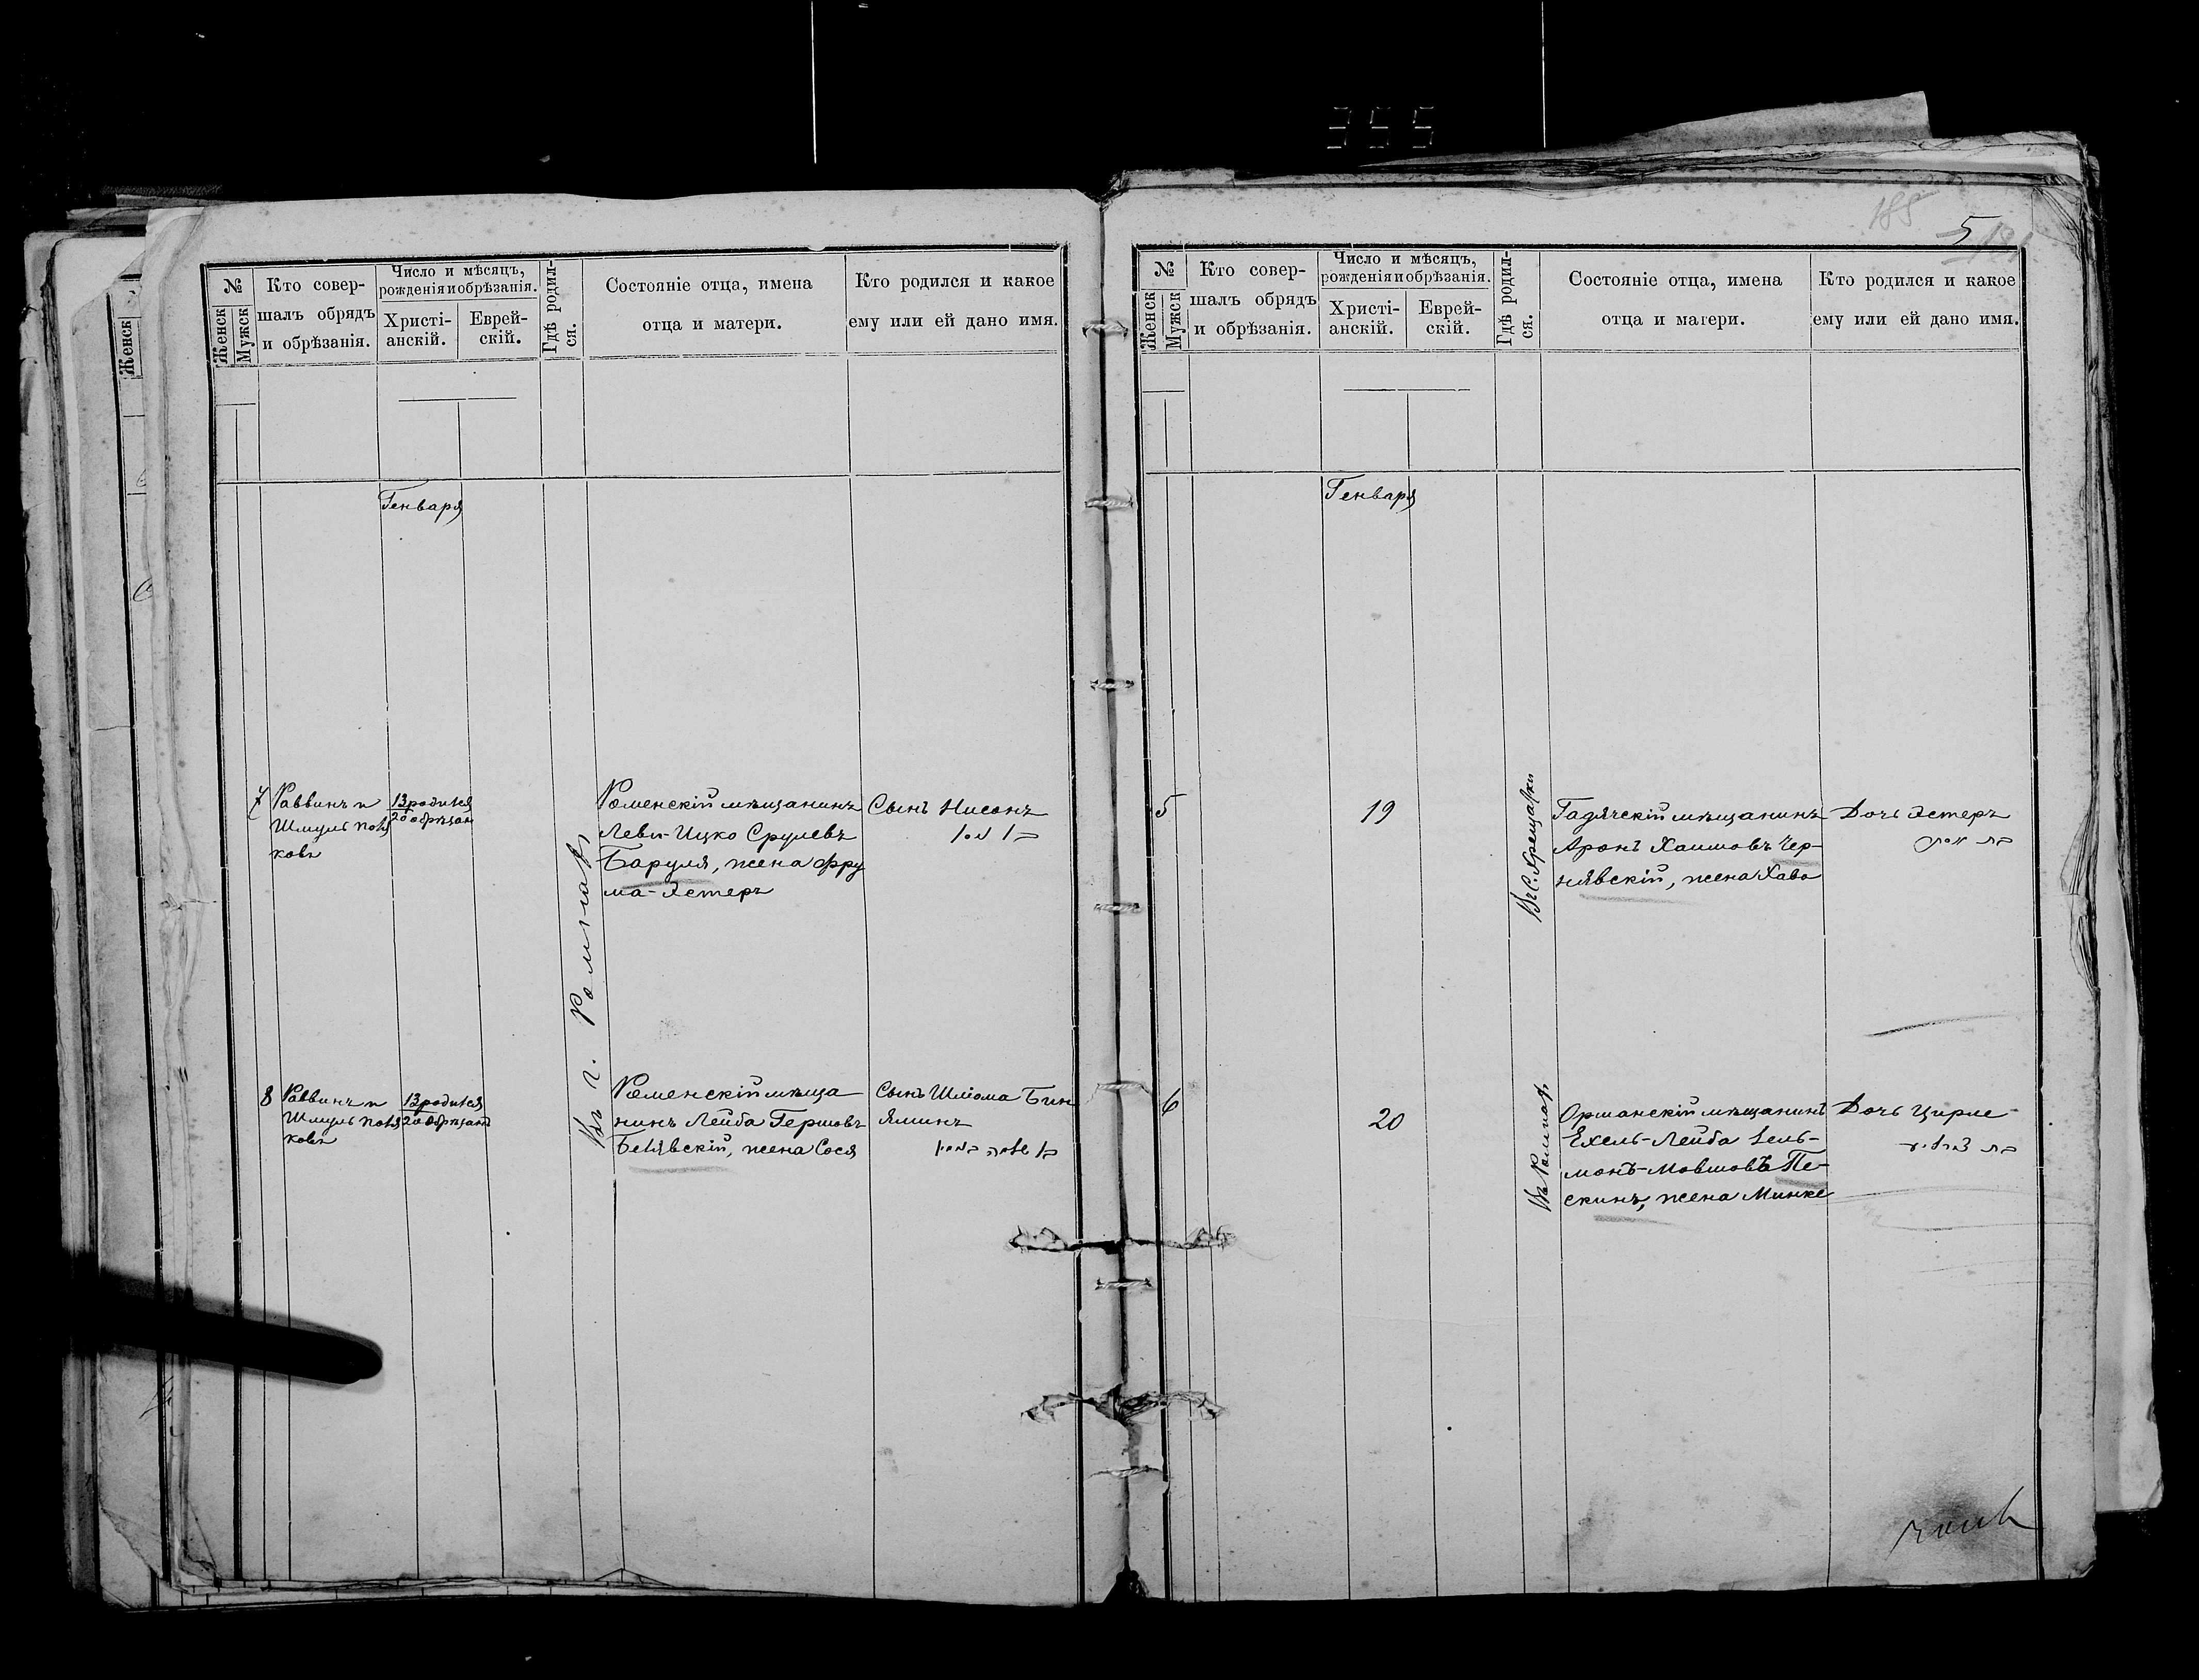 355
№
Женск
Мужск
Кто совер-
шалъ обрядъ
и обрѣзанія.
Число и мѣсяцъ,
рожденія и обрѣзанія.
Христі-
анскій.
Еврей-
скій.
Гдѣ родил-
ся.
Состояніе отца, имена
отца и матери.
Кто родился и какое
ему или ей дано имя.
Генваря
7
Раввинъ и
Шмуль
ковъ
13 родился
20 обрѣзан
Въ г. Ромнахъ
Роменскій мѣщанинъ
Леви-Ицко Срулевъ
Баруля, жена Фру
ма-Эстеръ
Сынъ Нисонъ
בן ניסן
8
Раввинъ и
Шмуль
ковъ
13 родился
20 обрѣзанъ
Роменскій мѣща
нинъ Лейба Гершовъ
Белявскій, жена Сося
Сынъ Шліома Бин
яминъ
בן שלמה בנימין
5
№
Женск
Мужск
Кто совер-
шалъ обрядъ
и обрѣзанія.
Число и мѣсяцъ,
рожденія и обрѣзанія.
Христі-
анскій.
Еврей-
скій.
Гдѣ родил-
ся.
Состояніе отца, имена
отца и матери.
Кто родился и какое
ему или ей дано имя.
Генваря
5
19
Въ С.
Гадячскій мѣщанинъ
Аронъ Хаимовъ Чер-
нявскій, жена Хава
Дочь Эстеръ
בת אסתר
6
20
Въ Ромнахъ
Оршанскій мѣщанинъ
Ехель-Лейба Зель-
манъ-Мовшовъ Пе-
скинъ, жена Минке
Дочь Цирле
בת